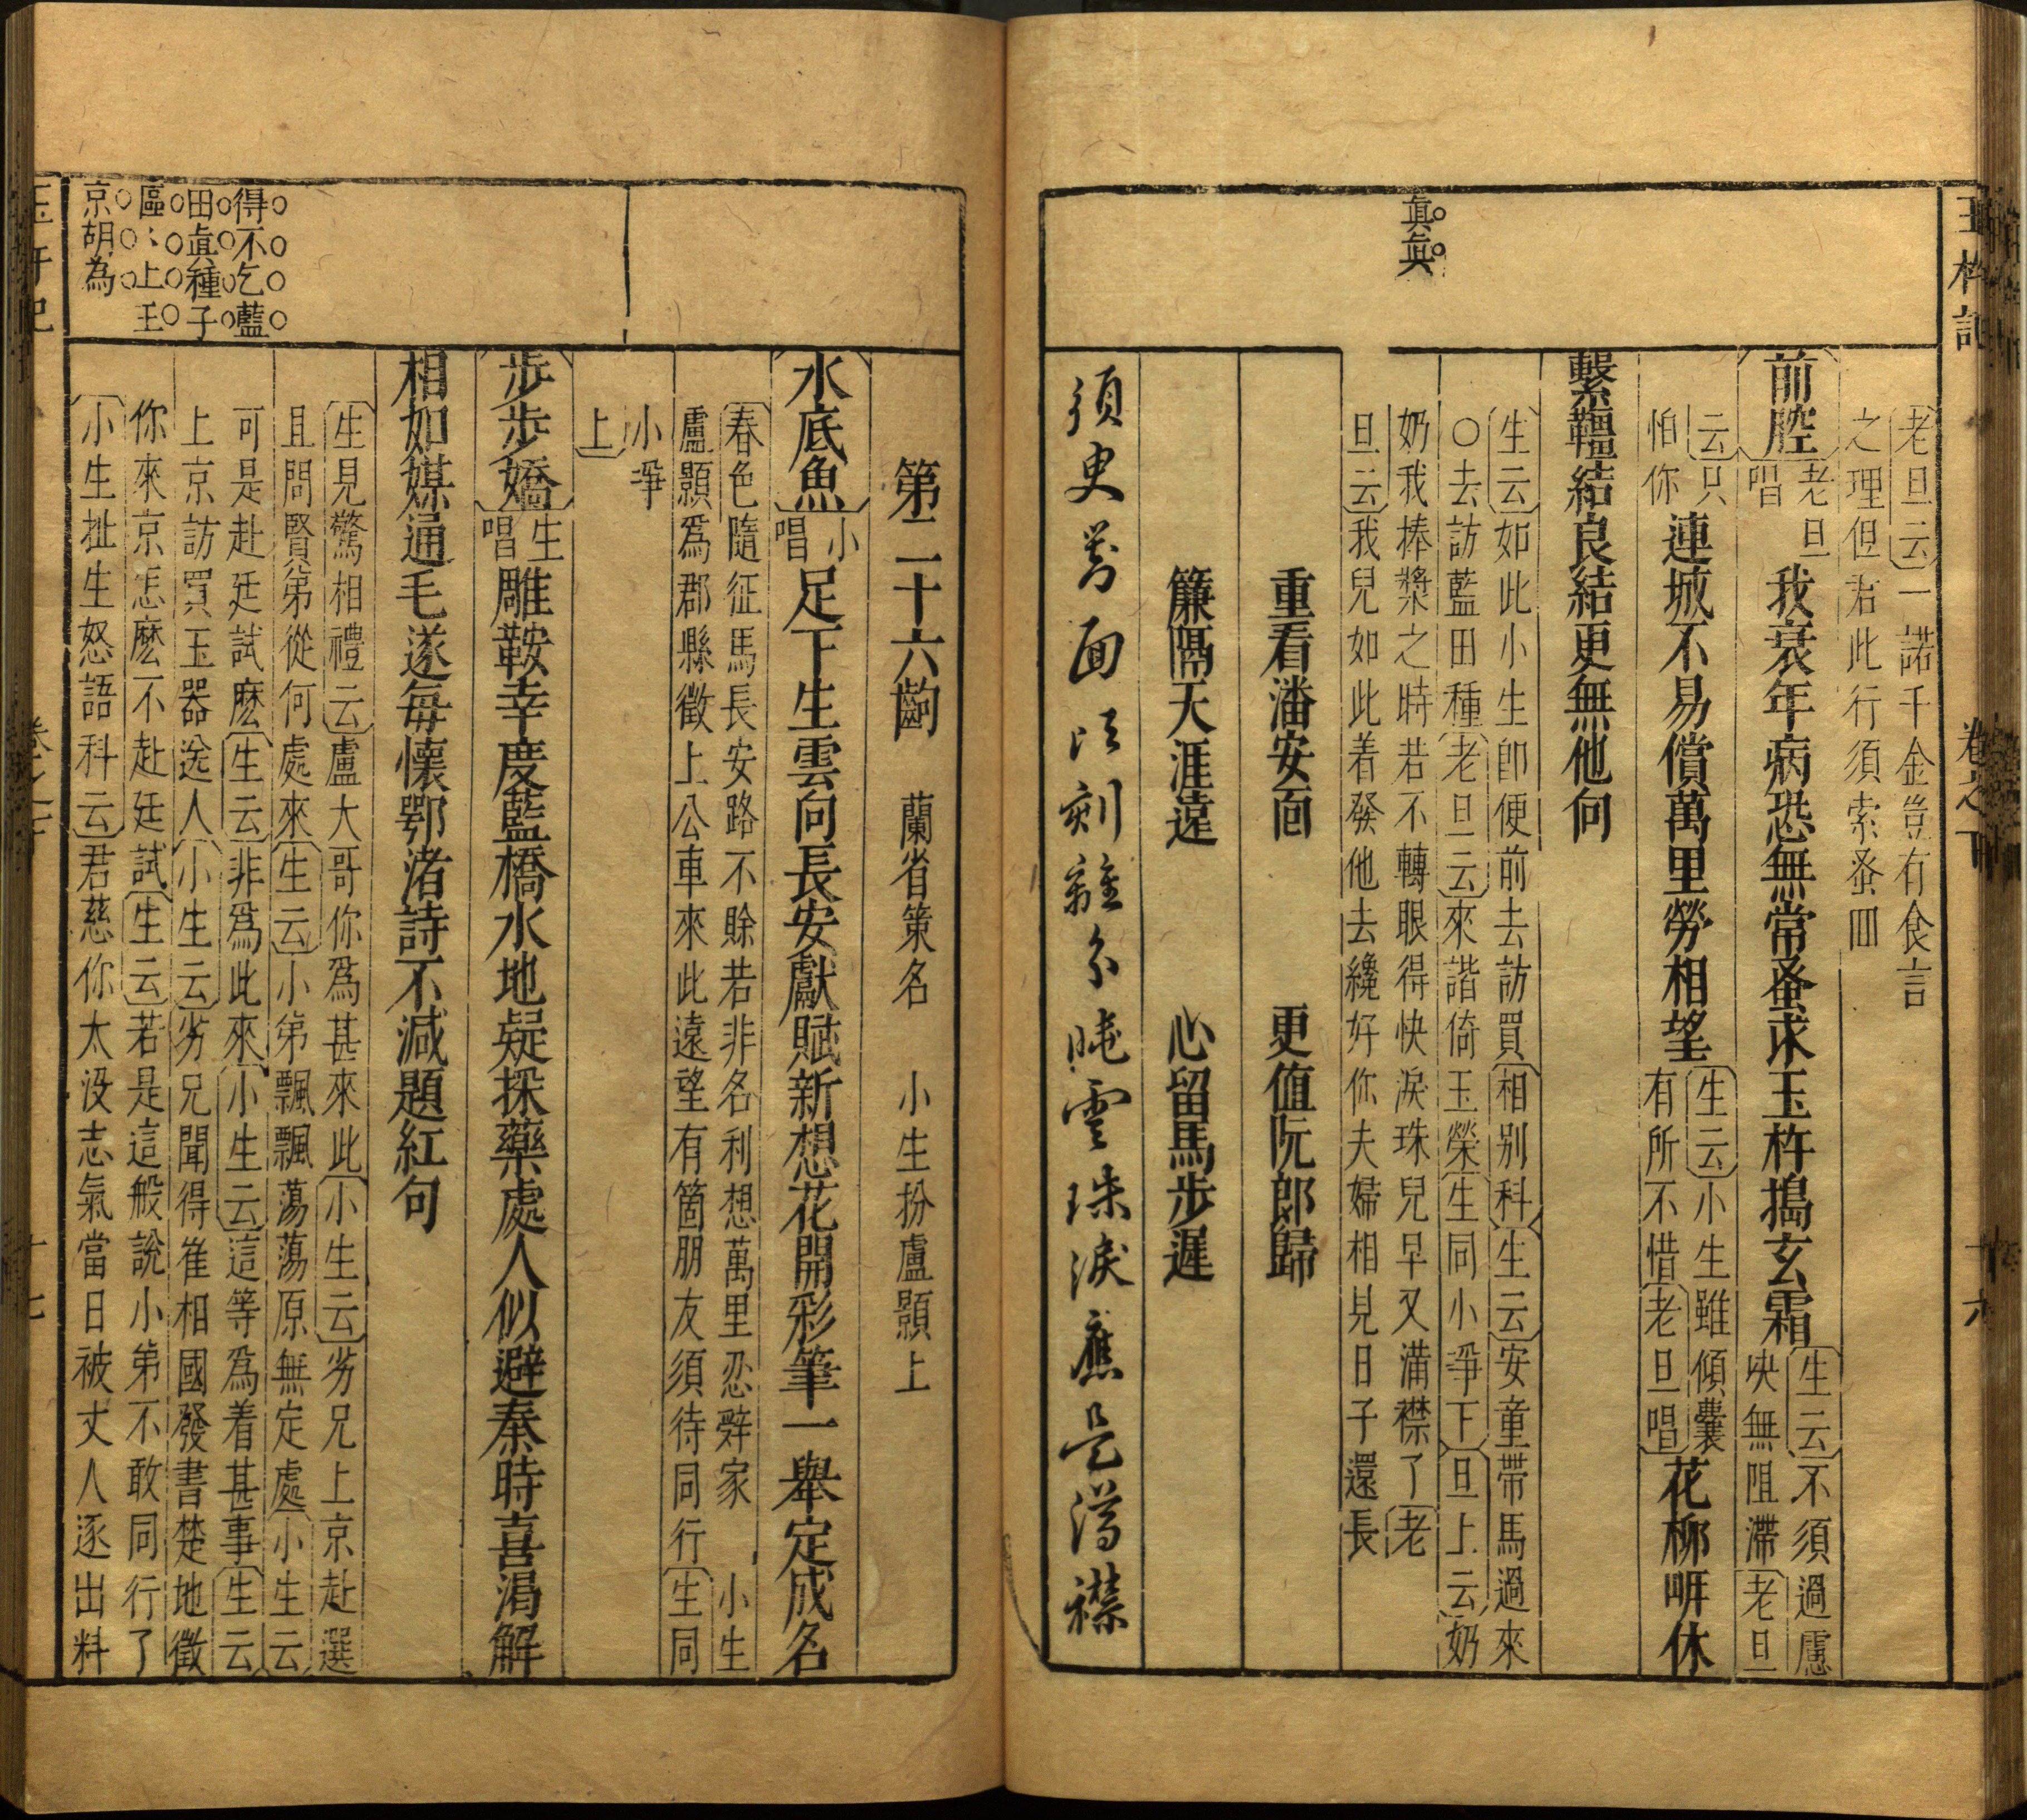 玉杵記
卷之下
十六
眞眞
老旦云一諾千金豈有食言
之理但君此行須索蚤回
前腔
老旦唱
我衰年病恐無常蚤求玉杵搗玄霜
生云不須過慮
央無阻滯老旦
云只怕你
連城不易償萬里勞相望
生云小生雖傾囊
有所不惜老旦唱
花柳衖休
繫韁結良結更無他向
生云如此小生卽便前去訪買相別科生云安童帶馬過來
○去訪藍田種老旦云來諧倚玉榮生同小爭下旦上云奶
奶我捧漿之時若不轉眼得快淚珠兒早又滿襟了老
旦云我兒如此着發他去纔好你夫婦相見日子還長
重看潘安面　更值阮郎歸
簾隔天涯遠　心留馬步遲
須臾對面頃刻離分曉雲珠淚應是滿襟
第二十六齣　蘭省策名　小生扮盧顥上
水底魚
小唱
足下生雲向長安獻賦新想花開彩筆一舉定成名
春色隨征馬長安路不賒若非名利想萬里忍辭家　小生
盧顥爲郡縣徵上公車來此遠望有箇朋友須待同行生同
小爭
上
步步嬌
生唱
雕鞍幸度藍橋水地疑採藥處人似避秦時喜渴解
相如媒通毛遂每懷鄂渚詩不減題紅句
生見驚相禮云盧大哥你爲甚來此小生云劣兄上京赴選
且問賢弟從何處來生云小弟飄飄蕩蕩原無定處小生云
可是赴廷試麽生云非爲此來小生云這等爲着甚事生云
上京訪買玉器送人小生云劣兄聞得崔相國發書楚地徵
你來京怎麽不赴廷試生云若是這般說小弟不敢同行了
小生扯生怒語科云君慈你太没志氣當日被丈人逐出料
得不乞藍
田眞種子
區〻上王
京胡為
玉杵記
卷之下
十七